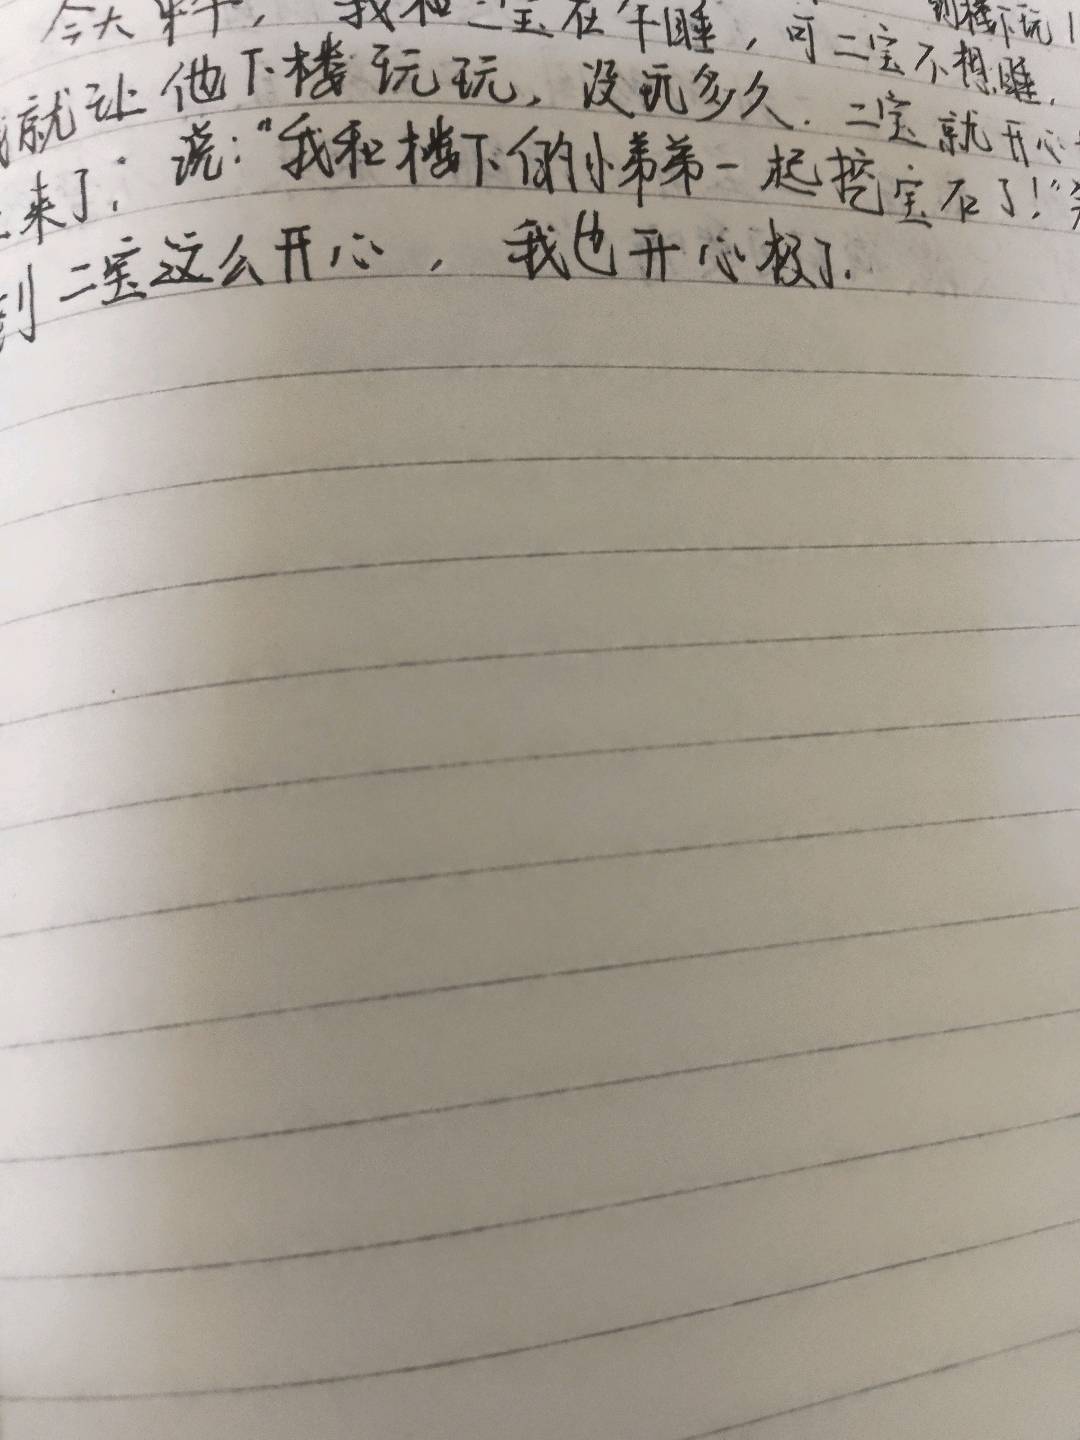 到楼下玩
今天中午，我和二宝在午睡，可二宝不想睡，
我就让他下楼玩玩，没玩多久．二宝就开心
来了：说：“我和楼下的小弟弟一起挖宝石了！”
到二宝这么开心，我也开心极了．